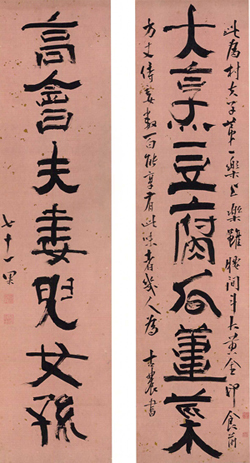 大烹豆腐瓜薑菜
此爲村夫子第一樂上樂雖腰間斗大黃金印食前
方丈侍妾數百能享有此味者幾人爲 古農書
高會夫妻兒女孫
七十一果